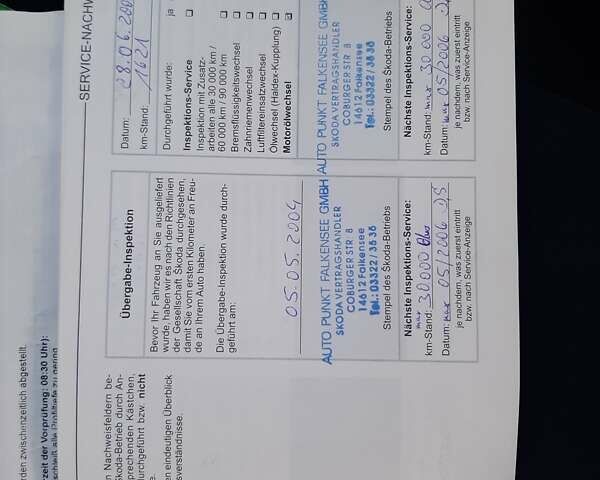 SERVICE-NACHW
Übergabe-Inspektion
Bevor Ihr Fahrzeug an Sie ausgeliefert
wurde, haben wir es nach den Richtlinien
der Gesellschaft Škoda durchgesehen,
damit Sie vom ersten Kilometer an Freu-
de an Ihrem Auto haben.
Die Übergabe-Inspektion wurde durch-
geführt am:
05.05.2004
AUTO PUNKT FALKENSEE GMBH
SKODA VERTRAGSHÄNDLER
COBURGER STR 8
14612 Falkensee
Tel.: 03322 / 38 38
Stempel des Škoda-Betriebs
Nächste Inspektions-Service:
km-Stand: max 30 000
Datum: max 05/2006
je nachdem, was zuerst eintritt
bzw. nach Service-Anzeige
Datum: 28.06.200
km-Stand: 1621
Durchgeführt wurde: ja
Inspektions-Service
Inspektion mit Zusatz-
arbeiten alle 30 000 km /
60 000 km / 90 000 km
Bremsflüssigkeitswechsel
Zahnriemenwechsel
Luftfiltereinsatzwechsel
Ölwechsel (Haldex-Kupplung)
Motorölwechsel
AUTO PUNKT FALKENSEE GMBH
SKODA VERTRAGSHÄNDLER
COBURGER STR 8
14612 Falkensee
Tel.: 03322 / 38 38
Stempel des Škoda-Betriebs
Nächste Inspektions-Service:
km-Stand: max 30 000
Datum: max 05/2006
je nachdem, was zuerst eintritt
bzw. nach Service-Anzeige
n Nachweisfeldern be-
Škoda-Betrieb durch An-
prechenden Kästchen,
durchgeführt bzw. nicht
en eindeutigen Überblick
sverständnisse.
rden zwischenzeitlich abgestellt.
rzeit der Vorprüfung: 08:30 Uhr):